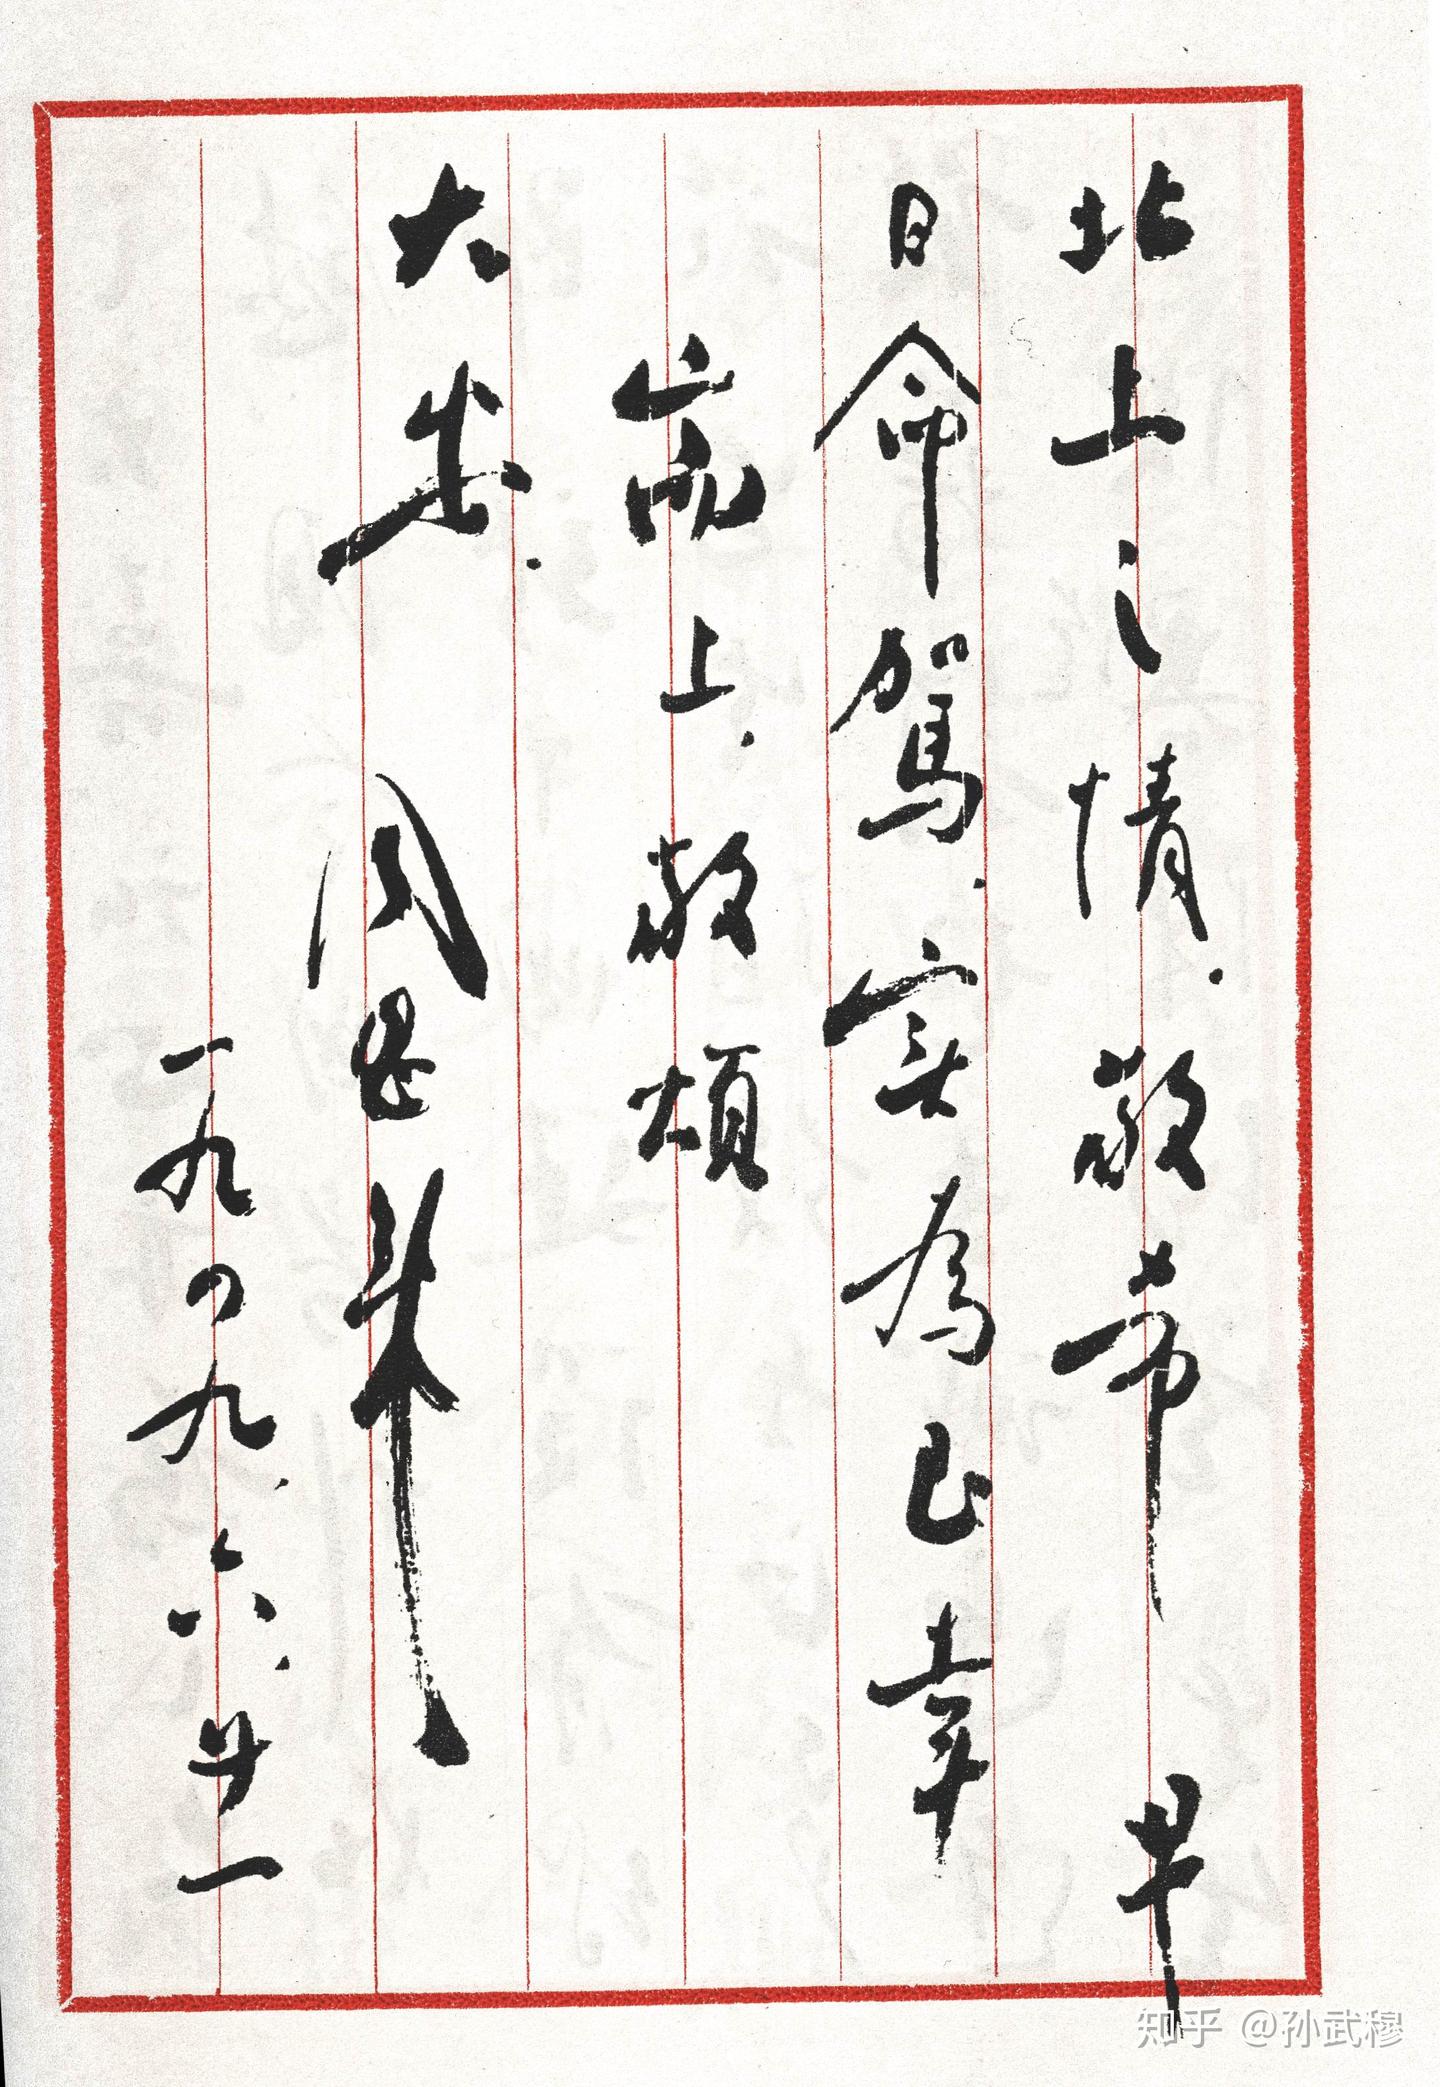 北上之情.敬希早
日命駕.实為至幸
耑上.敬頌
大安.周恩來
一九四九.六.廿一
知乎 @孙武穆